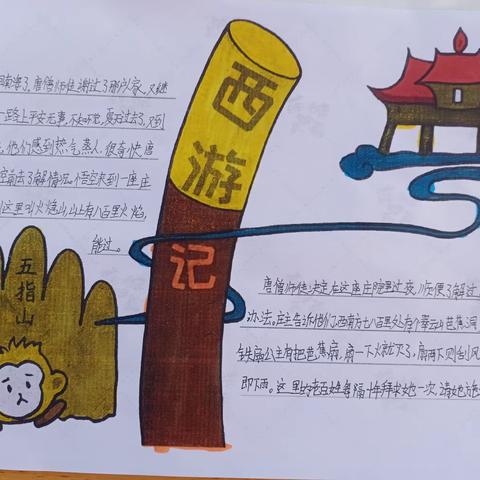 西游记
了,唐僧师徒谢过了那户人家,又继
一路上平安无事,不知不觉,夏天过去了,又到
,他们感到热气蒸人,很奇怪,唐
空前去了解情况。悟空来到一座庄
这里叫火焰山,山上有八百里火焰,
能过。
五指山
唐僧师徒决定在这座庄院里过夜,顺便了解过
办法。庄主告诉他们,西南方七八百里处有个翠云山芭蕉洞
铁扇公主有把芭蕉扇,扇一下火就灭了,扇两下则刮风
即下雨。这里的老百姓每隔十年拜求她一次,请她